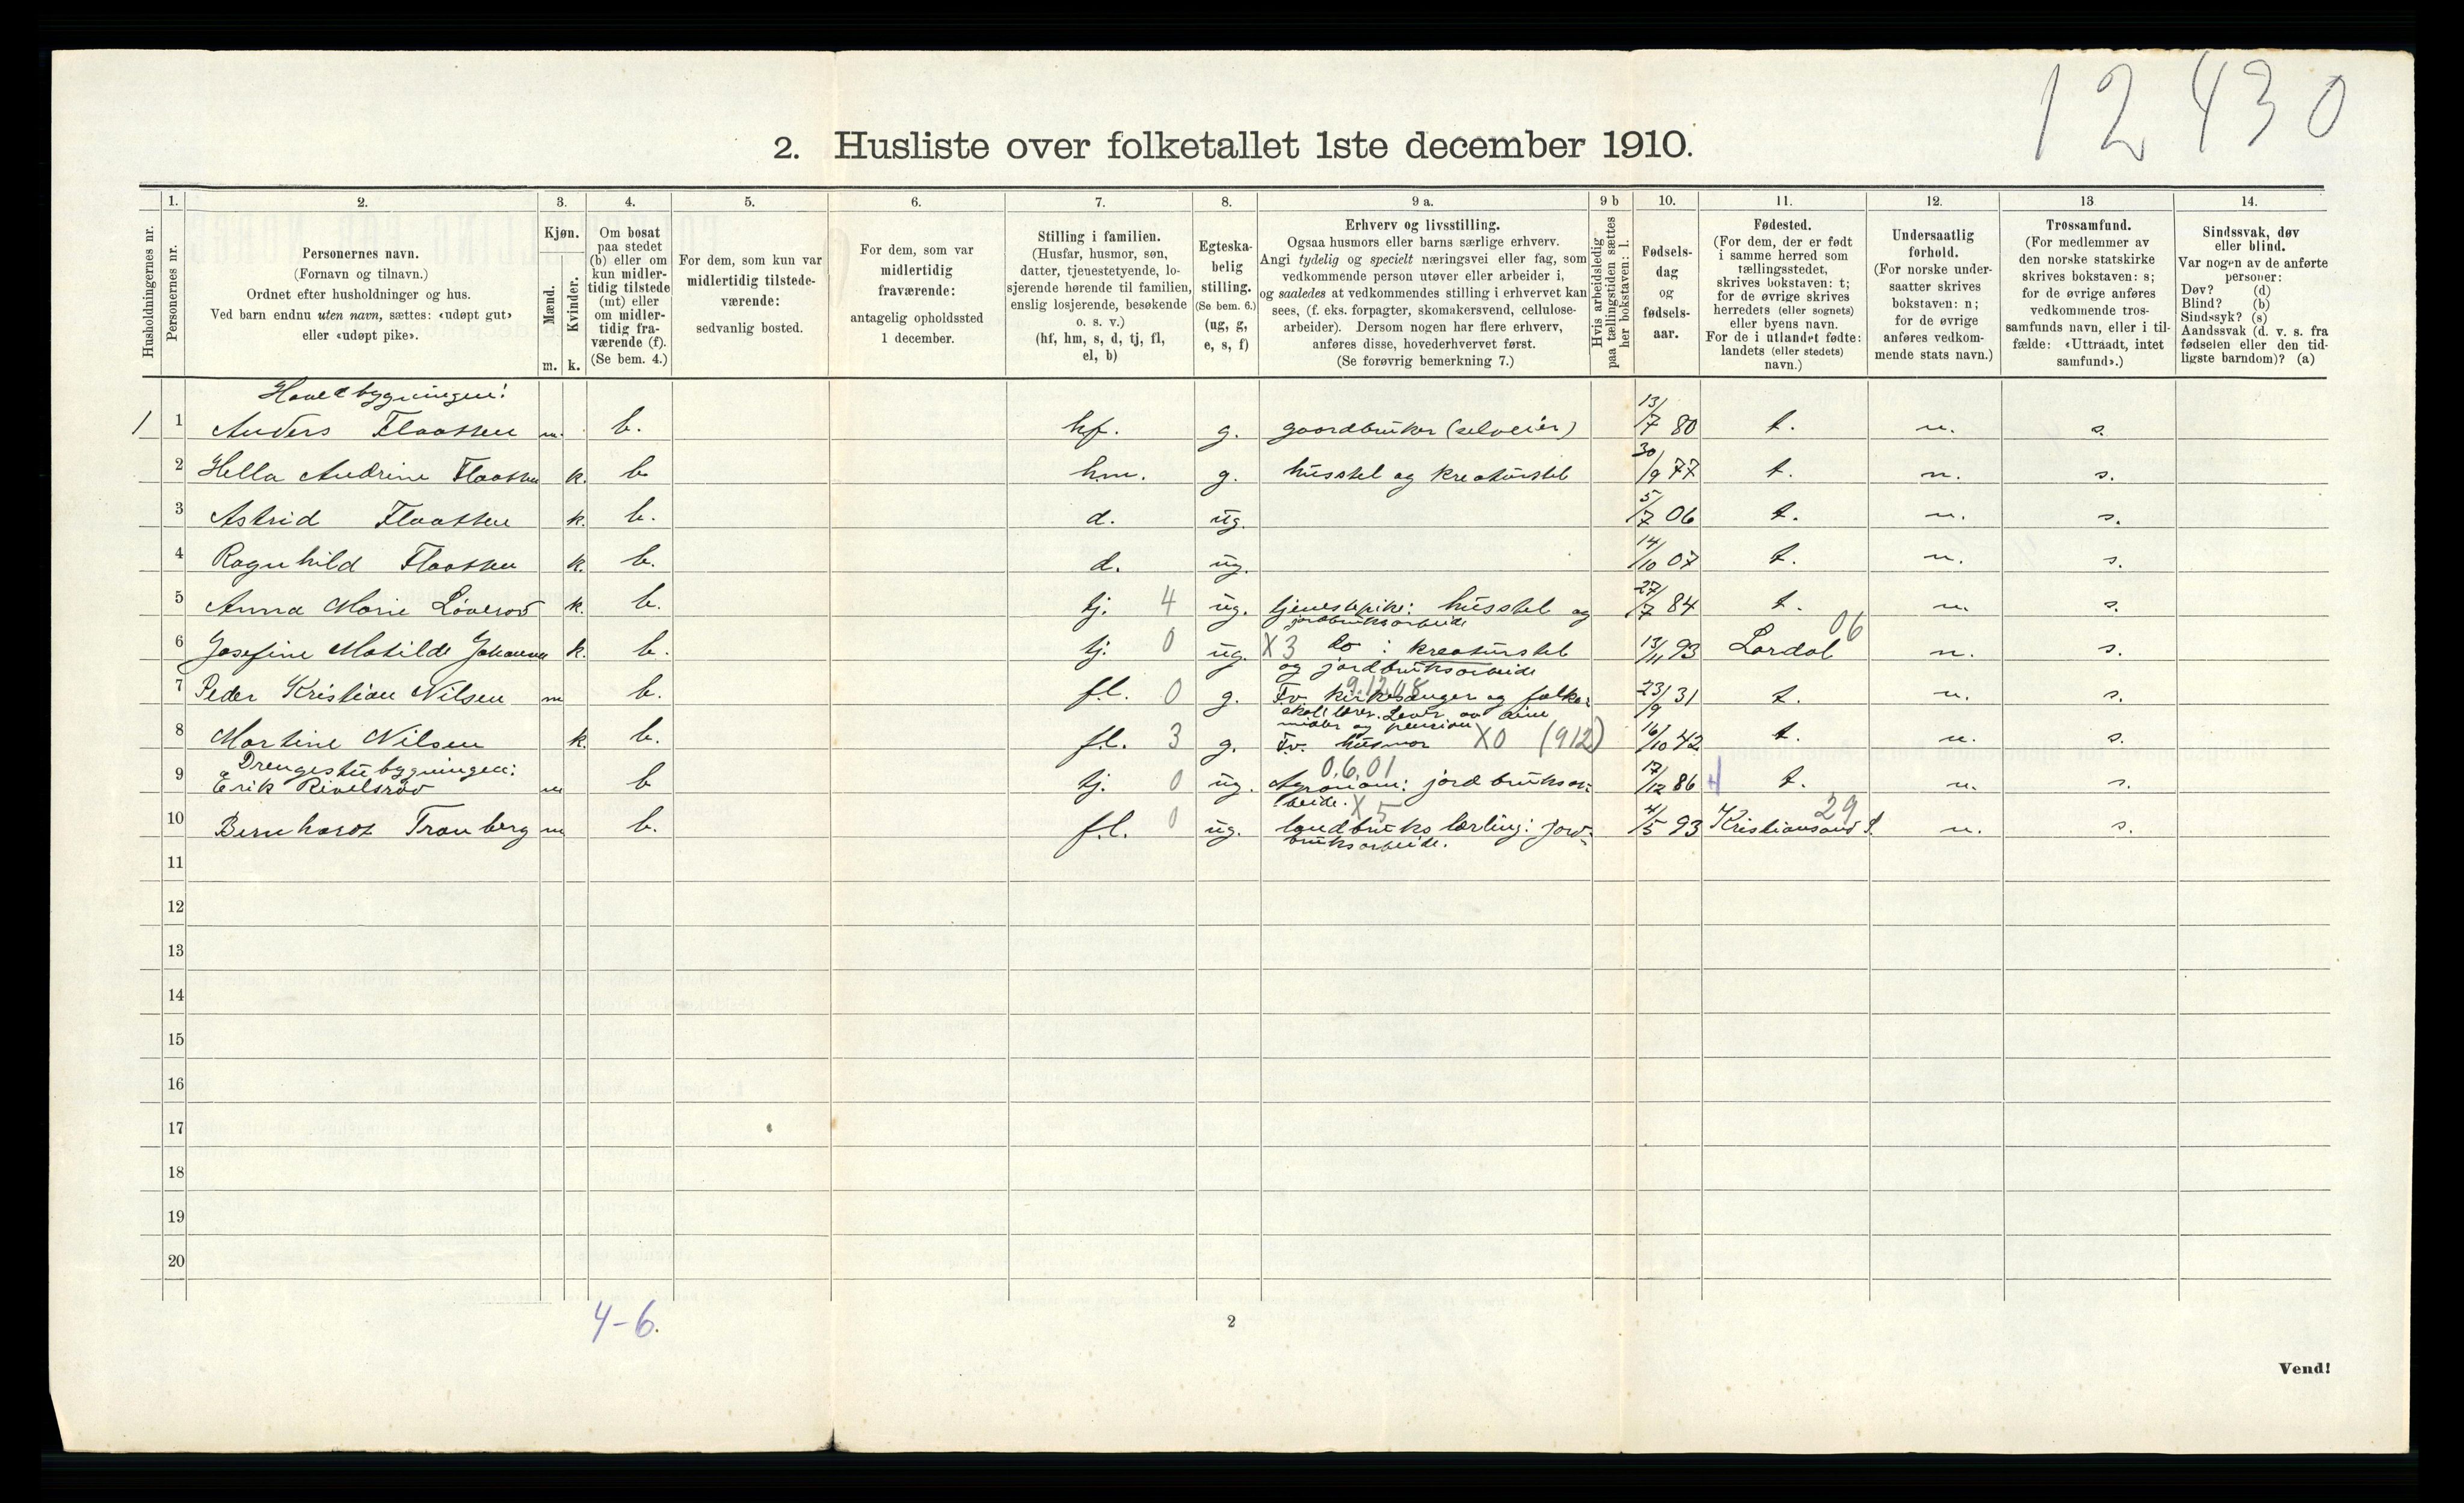 12 430
2. Husliste over folketallet 1ste december 1910.
Husholdningernes nr.
1.
Personernes nr.
2.
Personernes navn.
(Fornavn og tilnavn.)
Ordnet efter husholdninger og hus.
Ved barn endnu uten navn, sættes: «udøpt gut»
eller «udøpt pike».
3.
Kjøn.
Mænd. Kvinder.
m. k.
4.
Om bosat
paa stedet
(b) eller om
kun midler-
tidig tilstede
(mt) eller
om midler-
tidig fra-
værende (f).
(Se bem. 4.)
5.
For dem, som kun var
midlertidig tilstede-
værende:
sedvanlig bosted.
6.
For dem, som var
midlertidig
fraværende:
antagelig opholdssted
1 december.
7.
Stilling i familien.
(Husfar, husmor, søn,
datter, tjenestetyende, lo-
sjerende hørende til familien,
enslig losjerende, besøkende
o. s. v.)
(hf, hm, s, d, tj, fl,
el, b)
8.
Egteska-
belig
stilling.
(Se bem. 6.)
(ug, g,
e, s, f)
9 a.
Erhverv og livsstilling.
Ogsaa husmors eller barns særlige erhverv.
Angi tydelig og specielt næringsvei eller fag, som
vedkommende person utøver eller arbeider i,
og saaledes at vedkommendes stilling i erhvervet kan
sees, (f. eks. forpagter, skomakersvend, cellulose-
arbeider). Dersom nogen har flere erhverv,
anføres disse, hovederhvervet først.
(Se forøvrig bemerkning 7.)
9 b
Hvis arbeidsledig
paa tællingstiden sættes
her bokstaven: l.
10.
Fødsels-
dag
og
fødsels-
aar.
11.
Fødested.
(For dem, der er født
i samme herred som
tællingsstedet,
skrives bokstaven: t;
for de øvrige skrives
herredets (eller sognets)
eller byens navn.
For de i utlandet fødte:
landets (eller stedets)
navn.)
12.
Undersaatlig
forhold.
(For norske under-
saatter skrives
bokstaven: n;
for de øvrige
anføres vedkom-
mende stats navn.)
13
Trossamfund.
(For medlemmer av
den norske statskirke
skrives bokstaven: s;
for de øvrige anføres
vedkommende tros-
samfunds navn, eller i til-
fælde: «Uttraadt, intet
samfund».)
14.
Sindssvak, døv
eller blind.
Var nogen av de anførte
personer:
Døv? (d)
Blind? (b)
Sindssyk? (s)
Aandssvak (d. v. s. fra
fødselen eller den tid-
ligste barndom)? (a)
Hovedbygningen:
1 1 Anders Flaatten m. b. hf. g. gaardbruker (selveier) 13/7 80 t. n. s.
2 Hella Andrine Flaatten k. b hm. g. husstel og kreaturstel 30/9 77 t. n. s.
3 Astrid Flaatten k. b. d. ug. 5/7 06 t. n. s.
4 Ragnhild Flaatten k. b. d. ug. 14/10 07 t. n. s.
5 Anna Marie Løverød k. b. tj. 4 ug. tjenestepike: husstel og 27/7 84 t. n. s.
jordbruksarbeide
06
6 Josefine Matilde k. b. tj. 0 ug. X3 do : kreaturstel 13/11 93 Lardal n. s.
og jordbruksarbeide
9.12.08
7 Peder Kristian Nilsen m b. fl. 0 g. Fv. kirkesanger og folke- 23/9 31 t. n. s.
skolelærer. Lever av sine
midler og pension
8 Martine Nilsen k. b. fl. 3 g. Fv. husmor X0 (912) 16/10 42 t. n. s.
Drengestubygningen:
0.6.01
9 Erik Rivelsrød m b tj. 0 ug. Agronom: jordbruksar- 17/12 86 t. n. s.
beide. X5
29
10 Bernhardt Tranberg m b. fl. 0 ug. landbrukslærling: jord- 4/5 93 Kristiansand S. n. s.
bruksarbeide.
11
12
13
14
15
16
17
18
19
20
4-6.
2
Vend!